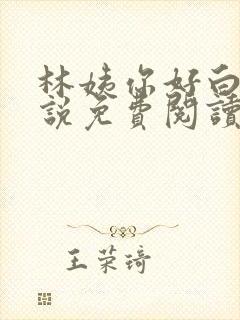 林姨你好白
說免費閱讀
王荣琦